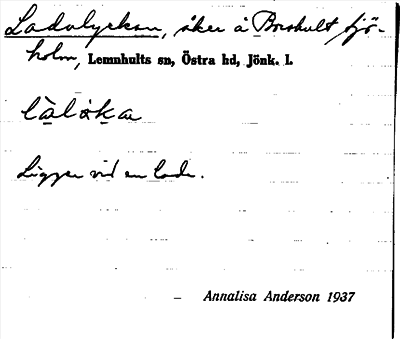 Ladalyckan, åker å Boshult sjö-
holm, Lemnhults sn, Östra hd, Jönk. l.
Ligger vid en lada.
Annalisa Anderson 1937